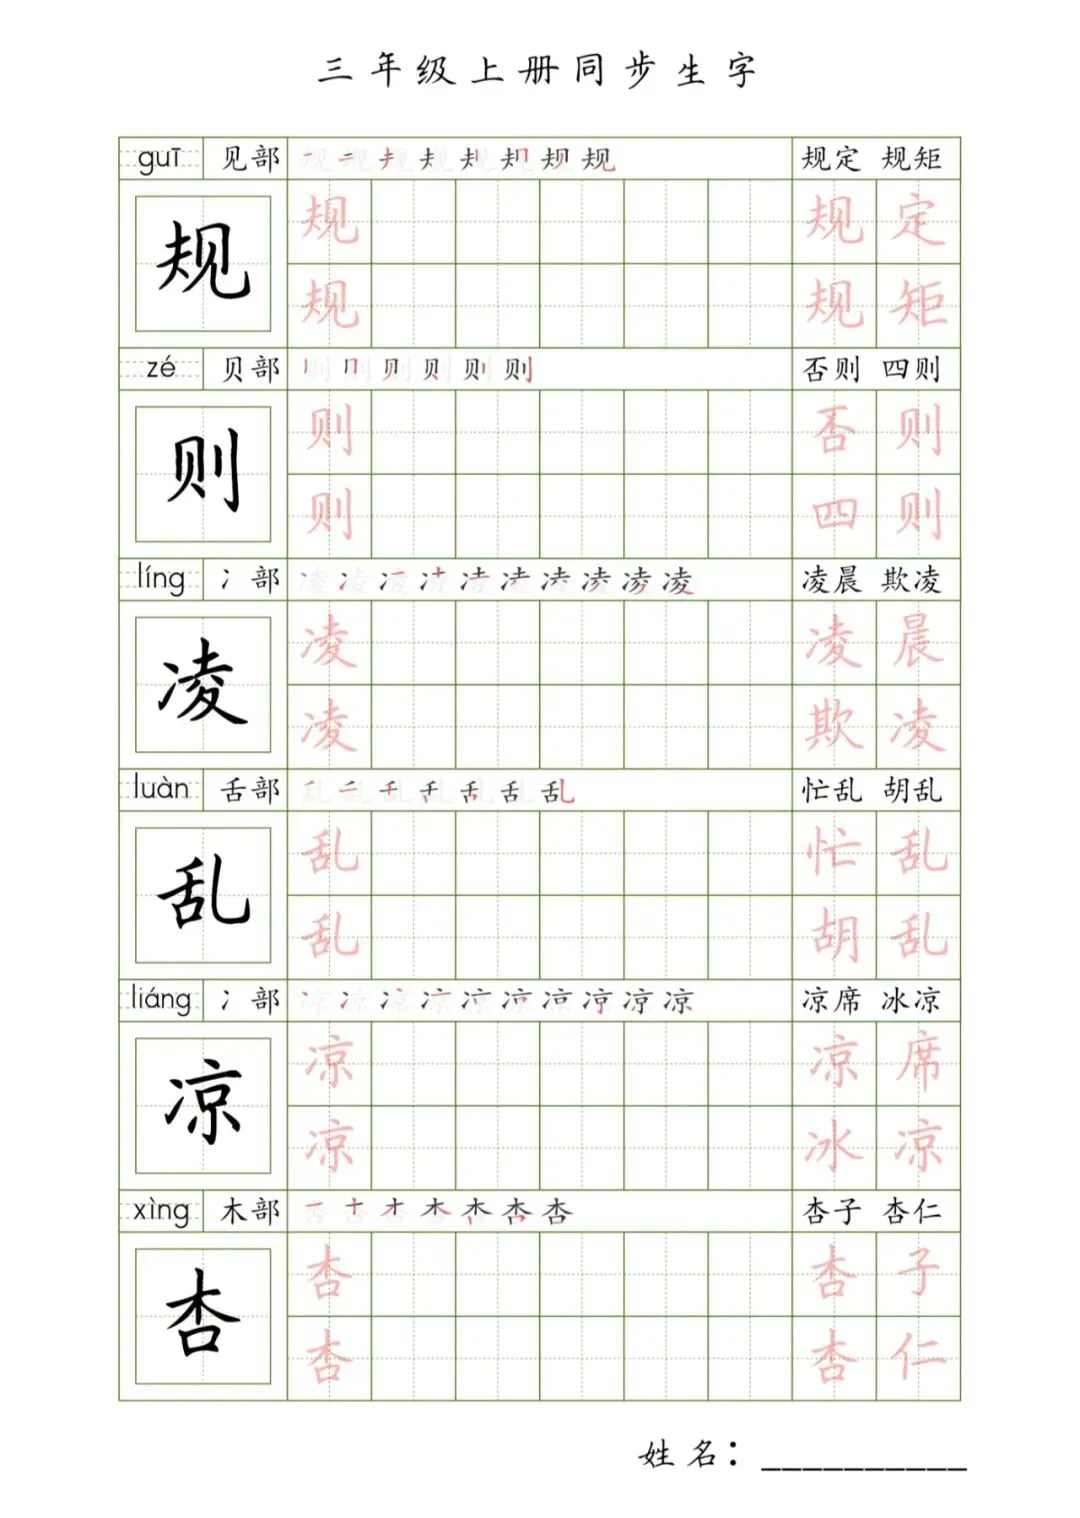 三年级上册同步生字
guī 见部 规定 规矩
规 规 规 定
规 规 矩
zé 贝部 否则 四则
则 则 否 则
则 四 则
líng 冫部 凌晨 欺凌
凌 凌 凌 晨
凌 欺 凌
luàn 舌部 忙乱 胡乱
乱 乱 忙 乱
乱 胡 乱
liáng 冫部 凉席 冰凉
凉 凉 凉 席
凉 冰 凉
xìng 木部 杏子 杏仁
杏 杏 杏 子
杏 杏 仁
姓名：__________